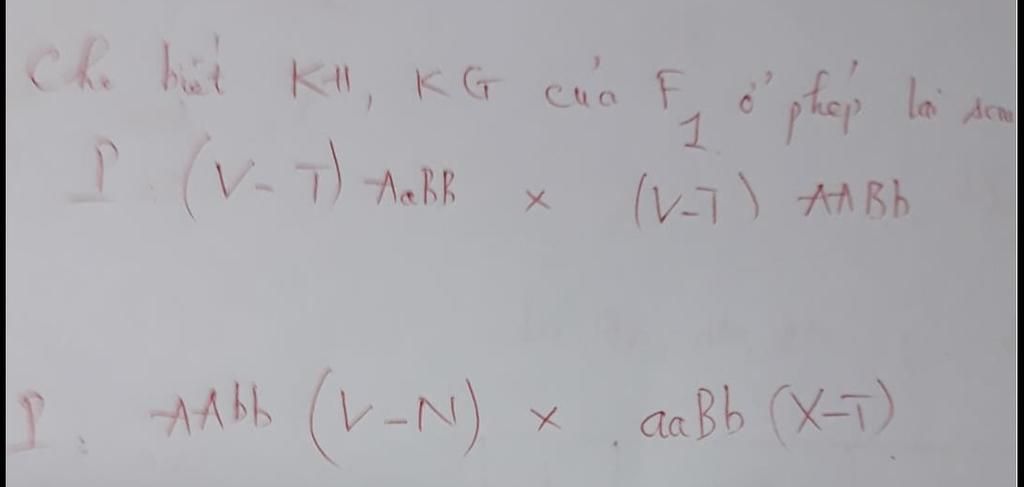 Cho biết KH, KG của F1 ở phép lai sau
P: (V-T) AaBB x (V-T) AABb
P: AAbb (V-N) x aaBb (X-T)